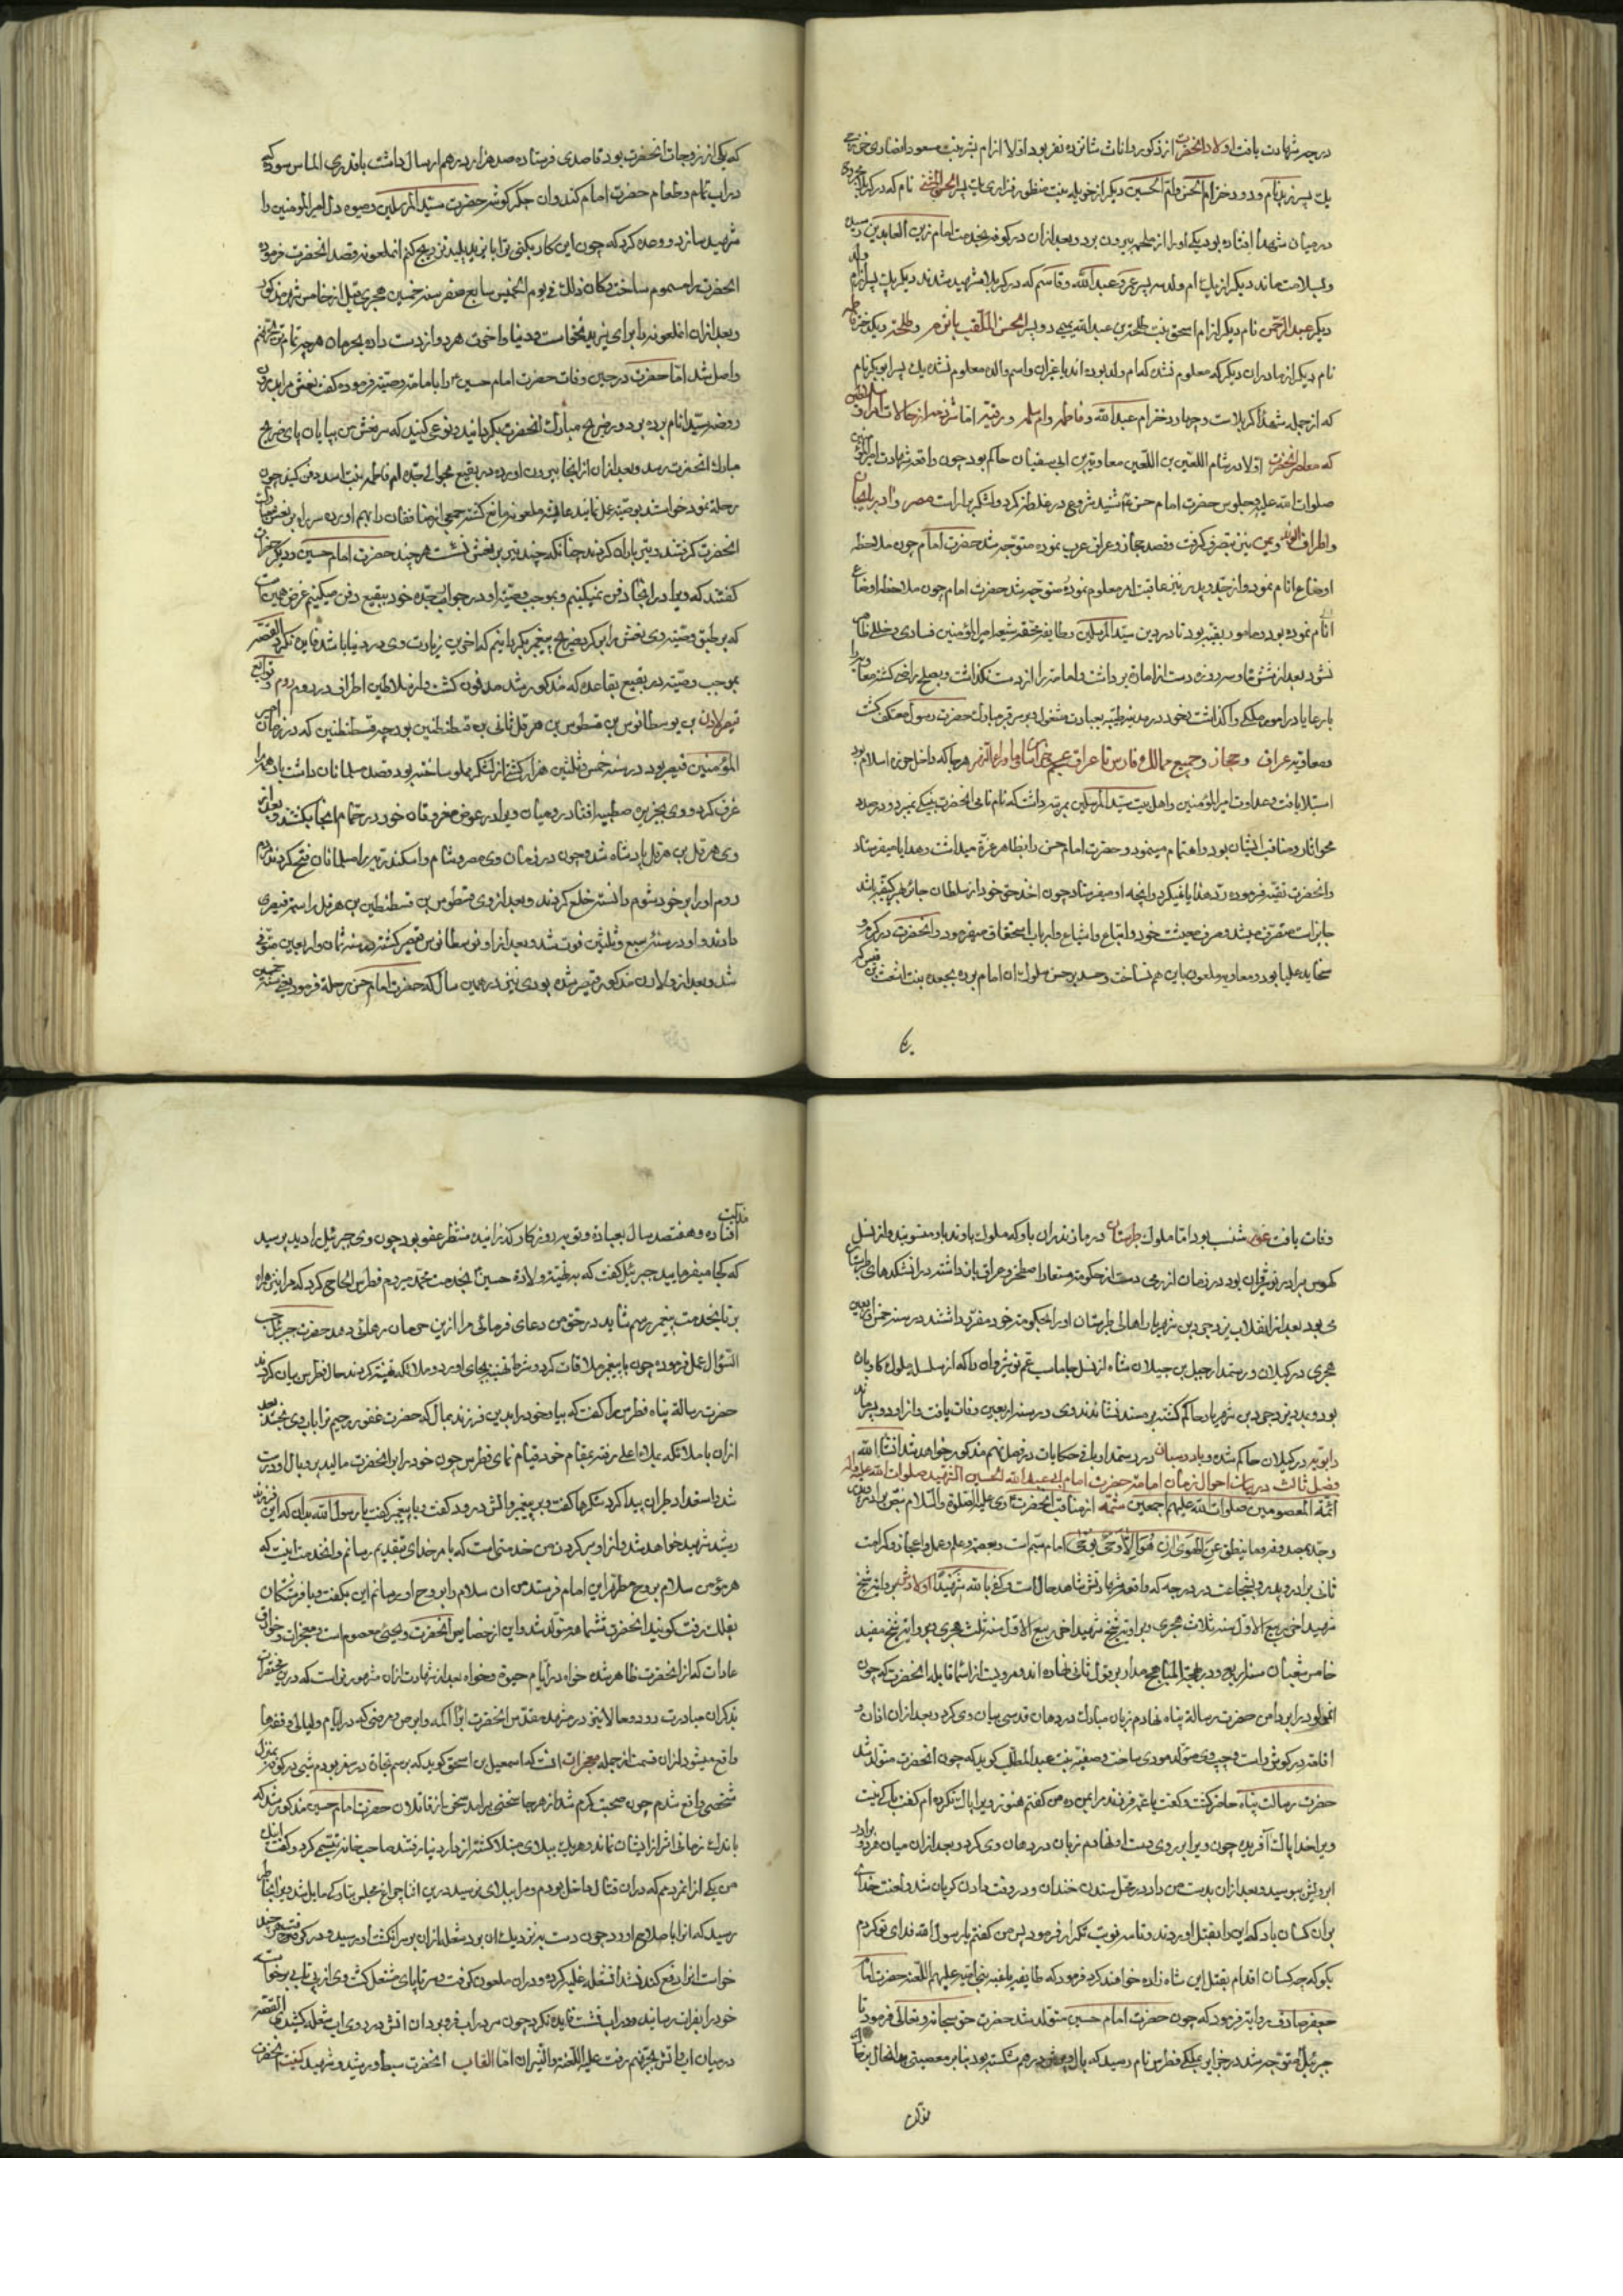 درجه شهادت یافت اولاد انحضرت از ذکور و اناث شانزده نفر بود اولا از ام بشر بنت مسعود انصاری خزرجی
یک پسر زید نام و دو دختر ام الحسن و ام الحسین دیگر از خوله بنت منظور فزاری یک پسر الحسن المثنی نام که در کربلا
در میان شهدا افتاده بود یکی او را از ملحمه بیرون برد و بعد از ان در کوفه بخدمت امام زین العابدین رسید
و بسلامت ماند دیگر از یک ام ولد سه پسر عمر و عبد الله و قاسم که در کربلا شهید شدند دیگر یک پسر از ام ولد
دیگر عبد الرحمن نام دیگر از ام اسحق بنت طلحة بن عبد الله تیمی دو پسر الحسن الملقب باثرم و طلحه و یک دختر فاطمه
نام دیگر از مادران دیگر که معلوم نشد که ام ولد بوده اند یا غیر ان و اسم والده معلوم نشد یک پسر ابوبکر نام
که از جمله شهداء کربلاست و چهار دختر ام عبد الله و فاطمه و ام سلمه و رقیه اما شرذمه از حالات سلاطین اطراف
که معاصر انحضرت اولا در شام اللعین بن اللعین معاویة بن ابی سفیان حاکم بود چون واقعه شهادت امیر المؤمنین
صلوات الله علیه و جلوس حضرت امام حسن شنید شروع در غلظه کرد و لشکر برار است مصر و اذربایجان
و اطراف و یمن نیز بتصرف گرفت و قصد حجاز و عراق عرب نموده متوجه شد حضرت امام چون ملاحظه
اوضاع انام نمود و از جد و پدر نیز عاقبت امر معلوم نموده متوجه شد حضرت امام چون ملاحظه اوضاع
انام نموده بود و مامور بتقیه بود تا در دین سید المرسلین و طایفه محقه شیعه امیر المؤمنین فسادی و خللی فاحش
نشود بعد از شش ماه و سه روز دست از امارة برداشت و امامة را از دست نگذاشت و بصلح راضی گشته معاویه را
با رعایا در امور ملکی واگذاشت و خود در مدینه طیبه بعبادت مشغول و بر سر قبر مبارک حضرت رسول معتکف گشت
و معاویه عراق و حجاز و جمیع ممالک فارس تا عراق عجم خراسان و ماوراء النهر هرجا که داخل حوزه اسلام بود
استیلا یافت و عداوت امیر المؤمنین و اهل بیت سید المرسلین بمرتبه داشت که نام نامی انحضرت بنیکی نمیبرد و درصدد
محو اثار و مناقب ایشان بود و اهتمام مینمود و حضرت امام حسن را بظاهر عزة میداشت و هدایا میفرستاد
و انحضرت تقیه فرموده رد هدایا نمیکرد و انچه او میفرستاد چون اخذ حق خود از سلطان جائر بهر کیفیه باشد
جایز است متصرف میشد و صرف معیشت خود و اتباع و اشیاع و ارباب استحقاق میفرمود و انحضرت در کرم و
سخا ید علیا بود و معاویه ملعون باین هم نساخت و حسد بر حسن سلوک ان امام برده بجعده بنت اشعث بن قیس
که یکی از زوجات انحضرت بود قاصدی فرستاده صد هزار درهم ارسال داشت با قدری الماس سوده
در اب تمام و طعام حضرت امام کند و ان جگرگوشه حضرت سید المرسلین و میوه دل امیر المؤمنین را
شهید سازد و وعده کرد که چون این کار بکنی ترا با یزید پلید تزویج کنم ان ملعونه قصد انحضرت فرموده
انحضرت را مسموم ساخت و کان ذلک فی یوم الخمیس سابع صفر سنه خمسین هجری قبل از خامس شهر مذکور
و بعد از ان ان ملعونه را برای یزید نخواست و دنیا و اخرت هر دو از دست داده بحرمان هرچه تمامتر بجهنم
واصل شد اما حضرت در حین وفات حضرت امام حسین را بامامت وصیته فرموده گفت نعش مرا بدرون
روضه سید انام برده بر دور ضریح مبارک انحضرت بگردانید و نوعی کنید که سر نعش من بپایان پای ضریح
مبارک انحضرت رسد و بعد از ان از انجا بیرون اورده در بقیع بحوالی جده ام فاطمه بنت اسد دفن کنید چون
رحلة نمود خواستند بوصیته عمل نمایند عایشه ملعونه مانع گشته جمعی از منافقان را بهم اورده سر راه بر نعش مبارک
انحضرت گرفتند و تیر باران کردند چنانکه چند تیر بر نعش نشست هرچند حضرت امام حسین و دیگر حضرات
گفتند که ویرا در اینجا دفن نمیکنیم و بموجب وصیته او در جوار جده خود ببقیع دفن میکنیم غرض همین است
که بر طبق وصیته وی نعش را بر گرد ضریح پیغمبر بگردانیم که اخرین زیارت وی در دنیا باشد فایده نکرد القصه
بموجب وصیته در بقیع بقاعده که مذکور شد مدفون گشت و از سلاطین اطراف در روم و توابع
قیصر لاون بن یوسطانوس بن قسطوس بن هرقل ثانی بن قسطنطنین بود چه قسطنطنین که در زمان امیر
المؤمنین قیصر بود در سنه خمس و ثلثین هزار کشتی از لشکر مملو ساخته بود و قصد مسلمانان داشت باد همه را
غرق کرد و وی بجزیره صقلیه افتاد رومیان ویرا در عوض مغروقان خود در حمام انجا بکشتند و بعد از
وی هرقل بن هرقل پادشاه شده چون در زمان وی مصر و شام و اسکندریه را مسلمانان فتح کردند مردم
روم او را بر خود شوم دانسته خلع کردند و بعد از وی قسطوس بن قسطنطین بن هرقل را اسم قیصری
دادند و او در سنه سبع و ثلثین فوت شد و بعد از او یوسطانوس قیصر گشته در سنه ثمان و اربعین متوفی
شد و بعد از او لاون مذکور قیصر شده بود وی نیز در همین سال که حضرت امام حسن رحلة فرمود یعنی سنه خمسین
وفات یافت شنسب بود اما ملوک طبرستان در مازندران باو که ملوک باوند باو منسوبند و از نسل
کیوس برادر نوشیروان بود در زمان ازرمی دست از حکومت مستعار اصطخر و عراق باز داشته در اتشکدهای طبرستان
می بود بعد از انقلاب یزدجرد بن شهریار اهالی طبرستان او را بحکومت خود مقرر داشتند در سنه خمس و اربعین
هجری در گیلان و رستمدار جیل بن جیلان شاه از نسل جاماسب عم نوشیروان
بود و یزدجرد بن شهریار حاکم گشته بر مسند نشاندند وی در سنه اربعین وفات یافت و از او دو پسر ماند
دابویه در گیلان حاکم شده و بادوسبان در رستمدار باقی حکایات در فصل نهم مذکور خواهد شد انشا الله
فصل ثالث در بیان احوال زمان امامت حضرت امام ابی عبد الله الحسین الشهید صلوات الله علیه و اله
ائمة المعصومین صلوات الله علیهم اجمعین شمه از مناقب انحضرت وی علیه الصلوة والسلام بنص برادر
و جد بمصدوقه و ما ینطق عن الهوی ان هو الا وحی یوحی امام سیم است و بعصمة و علم و عمل و اعجاز و کرامت
ثانی برادر و پدر و بشجاعت در درجه که واقعه شهادتش شاهد حال است و کفی بالله شهیدا ولادتش بروایة شیخ
شهید اخر ربیع الاول سنه ثلاث هجری و بروایة شیخ شهید اخر ربیع الاول سنه ثلث هجری و بروایة شیخ مفید
خامس شعبان سنه اربع بود و در منهج المباهج مدار بر قول ثانی نهاده اند و مرویست از اسما قابله انحضرت که چون
انمولود را بر دامن حضرت رسالة پناه نهادم زبان مبارک در دهان قدسی بیان وی کرد و بعد از ان اذان و
اقامه در گوش راست و چپ وی متولد مودی ساخت و صفیه بنت عبد المطلب گوید که چون انحضرت متولد شد
حضرت رسالت پناه حاضر گشت و گفت یا عمه فرزند مرا بمن ده من گفتم هنوز ویرا پاک نکرده ام گفت پاک نیست
ویرا خدا پاک آفریده چون ویرا بر روی دست او نهادم زبان در دهان وی کرد و بعد از ان میان هر دو
ابرویش ببوسید و بعد از ان بدست من داد در محل ستدن خندان و در وقت دادن گریان شد و لعنت خدای
بر ان کسان باد که این را بقتل اوردند و تا سه نوبت تکرار فرمود پس من گفتم یا رسول الله فدای تو گردم
بگو که چه کسان اقدام بقتل این شاه زاده خواهند کرد فرمود که طایفه باغیه بنی امیه علیهم اللعنه حضرت امام
جعفر صادق روایة فرمود که چون حضرت امام حسین متولد شد حضرت حق سبحانه و تعالی فرمود تا
جبرئیل متوجه شد در جزایر بملکی فطرس نام رسید که بال و پرش درهم شکسته بود بنابر معصیتی
افتاده و هفتصد سال بعبادة و توبه روزگار گذرانیده منتظر عفو بود چون وی جبرئیل را دید پرسید
که کجا میفرمایید جبرئیل گفت که بتهنیة ولادة حسین بخدمت محمد میروم فطرس الحاح کرد که مرا نیز همراه
بر تا بخدمت پیغمبر رسم شاید در حق من دعای فرمائی مرا ازین حرمان رهائی دهد حضرت جبرئیل حسب
السؤال عمل فرموده چون با پیغمبر ملاقات کرد و شرط تهنیة بجای اورد و ملائکه تهنیة کردند حال فطرس بیان کردند
حضرت رسالة پناه فطرس را گفت که بیا و خود را بدین فرزند بمال که حضرت غفور رحیم ترا بال وی بخشد بعد
ازان با ملائکه بملاء اعلی رفته بمقام خود قیام نمای فطرس چون خود را بر انحضرت مالید پر و بال او درست
شد و استعداد طیران پیدا کرد شکرها گفت و بر پیغمبر و الش درود گفت و با پیغمبر گفت یا رسول الله بدان که این فرزند
رشید شهید خواهد شد و از او بر گردن من خدمتی است که با مر خدای بتقدیم رسانم و ان خدمت اینست که
هر مؤمن سلام بروح مطهر این امام فرستد من ان سلام را بروح او رسانم این بگفت و با فرشتگان
بفلک رفت گویند انحضرت ششماهه متولد شد و این از خصایص انحضرت و یحیی معصوم است و معجزات و خوارق
عادات که از انحضرت ظاهر شده خواه در ایام حیوة و خواه بعد از شهادت ازان مشهورتر است که درین مختصرات
بذکر ان مبادرت رود و حالا نیز در مشهد مقدس انحضرت ابراء اکمه و ابرص و مرضی که در ایام و لیالی وقفها
واقع میشود از ان قسمت از جمله معجزات انست که اسمعیل بن اسحق گوید که برسم تجارة در سفر بودم شبی در کوفه بمنزل
شخصی واقع شدم چون صحبت گرم شد از هرجا سخنی برامد سخن از قاتلان حضرت امام حسین مذکور شد که
باندک زمانی اثر از ایشان نماند و هریک ببلای مبتلا گشته از دار دنیا رفتند صاحب خانه تبسمی کرد و گفت اینک
من یکی از انمردمم که در ان قتال داخل بودم و مرا بلای نرسید درین اثنا چراغ مجلس بتاریکی مایل شد ویرا بخاطر
رسید که انرا باصلاح اورد چون دست بر نزدیک ان برد شعله ازان بر سر انگشت او رسید و در گوشت
خواست انرا دفع کند نشد انشعله غلبه کرده و در ان ملعون گرفت و سر تا پای مشتعل گشت وی از بی تابی برخواست
خود را بفرات رسانید و در اب نشست فایده نکرد چون سر در اب فرو برد ان اتش در روی اب شعله کشیدی القصه
در میان اب و اتش بجهنم رفت علیه اللعنة والنیران اما القاب انحضرت سبط و رشید و شهید کنیت انحضرت